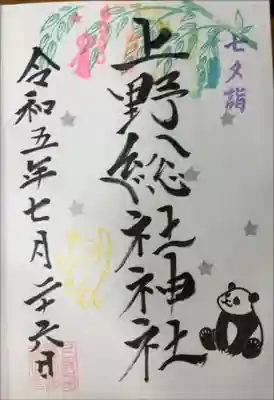 七夕詣
上野総社神社
令和五年七月二十六日